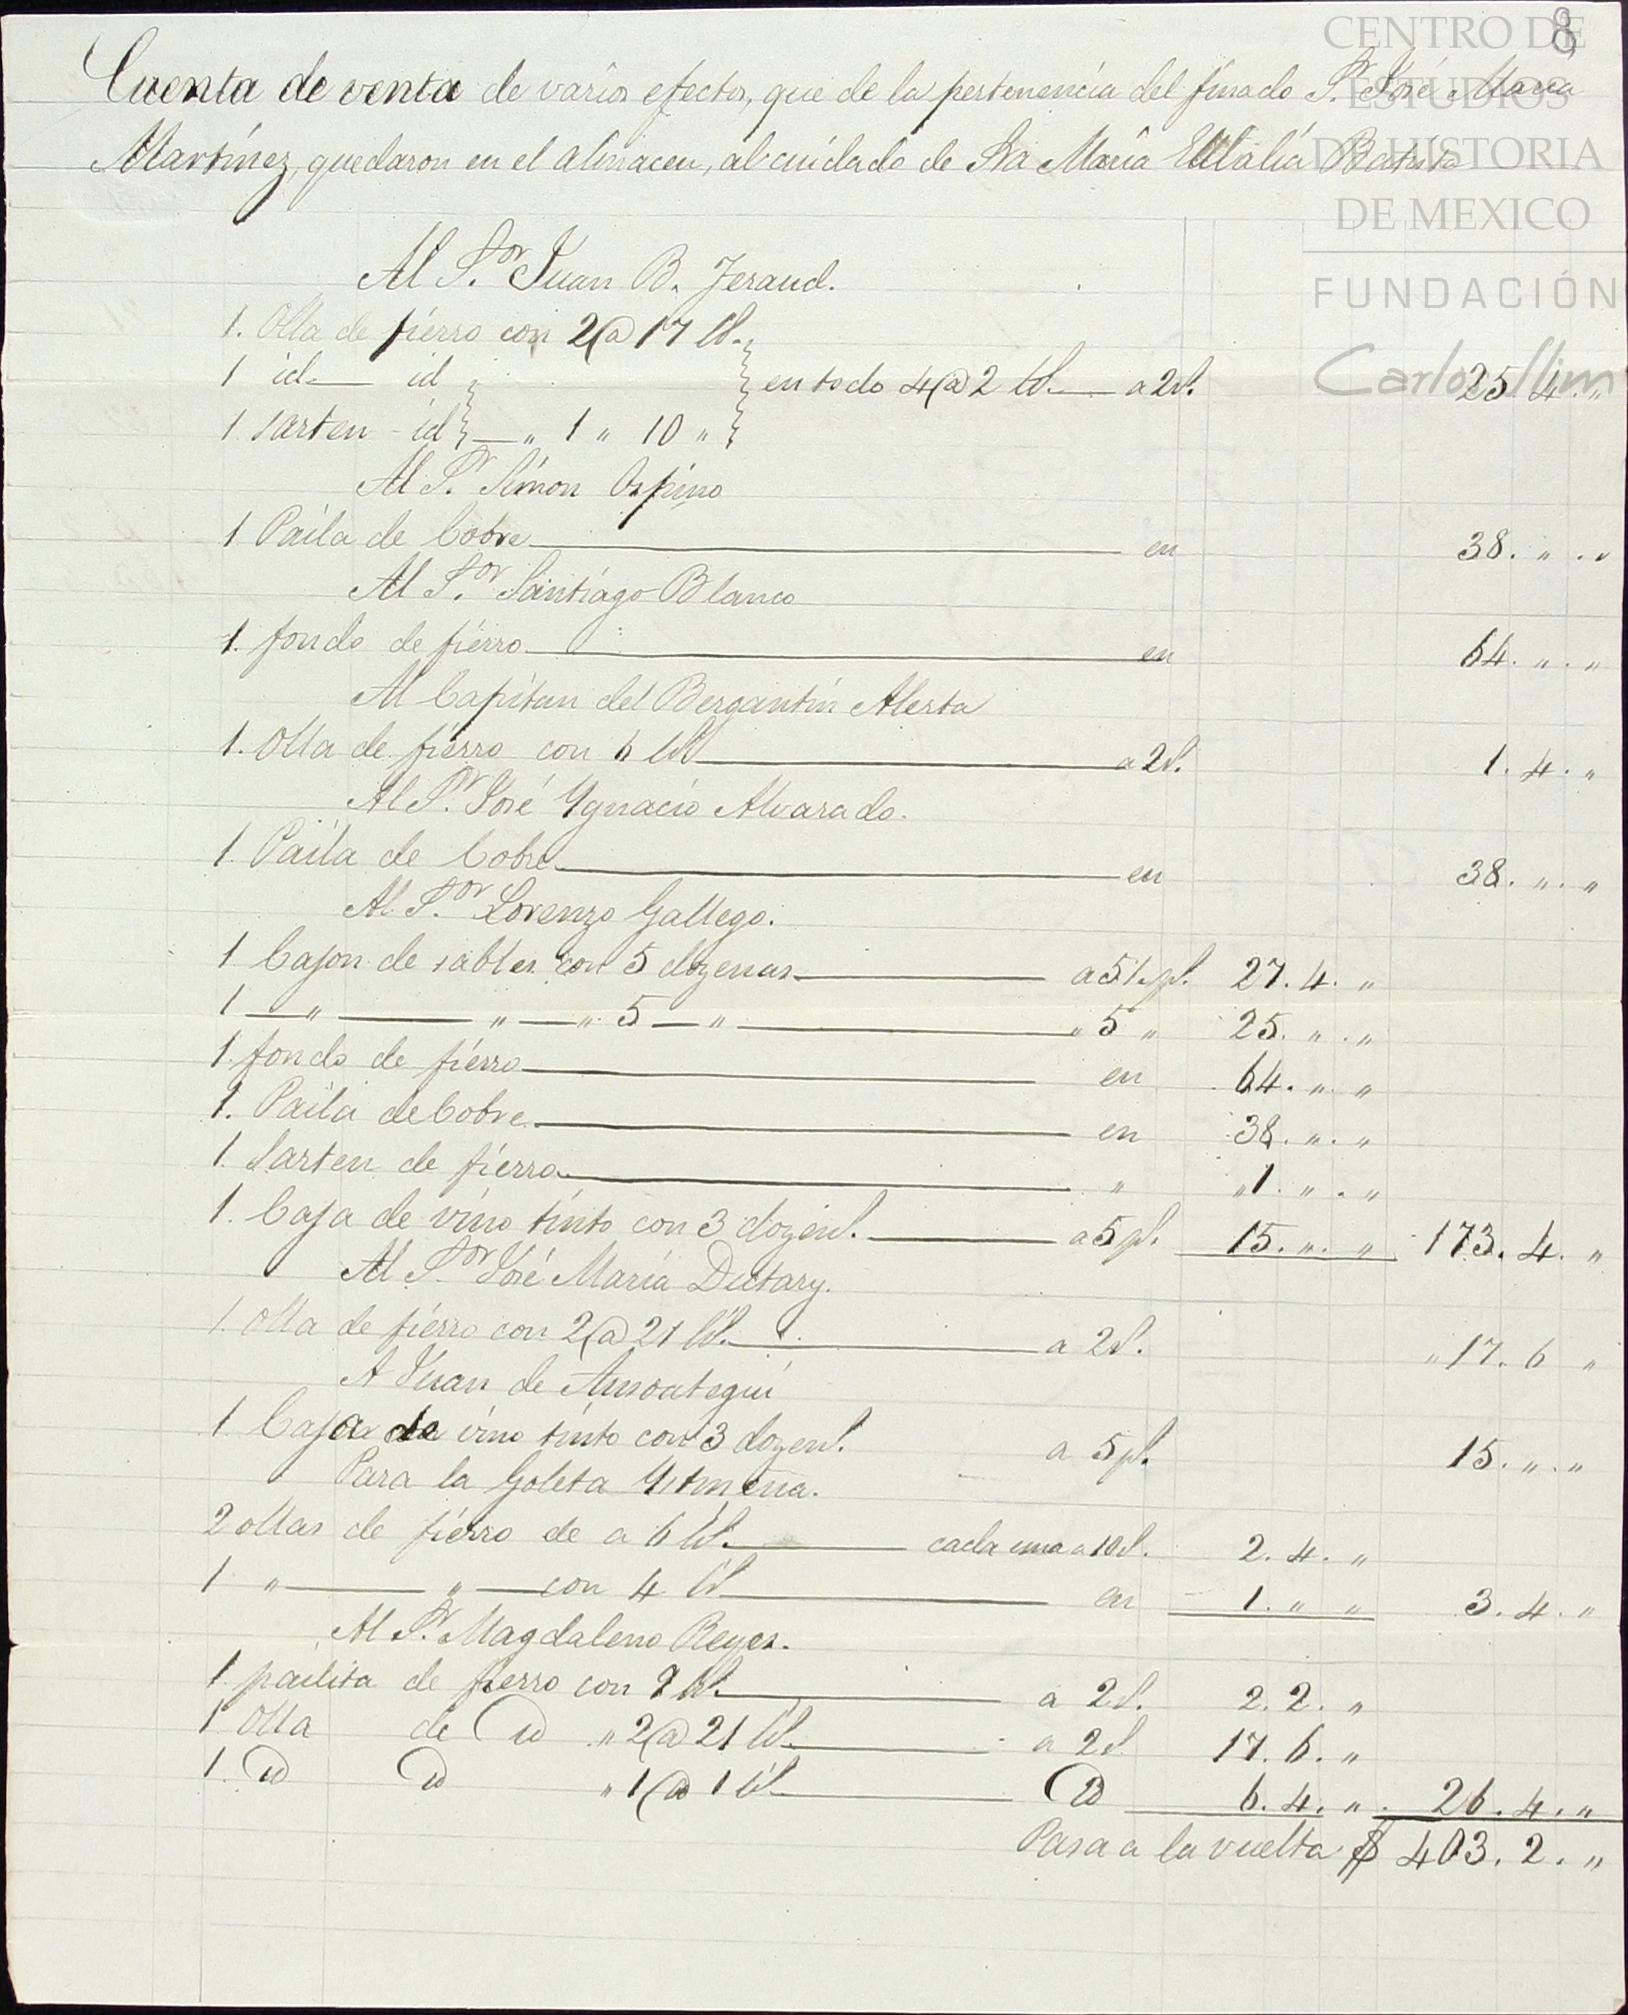 8
CENTRO DE
ESTUDIOS
DE HISTORIA
DE MEXICO
FUNDACIÓN
Carlos Slim
Cuenta de venta de varios efectos, que de la pertenencia del finado Sr. José Maria
Martínez, quedaron en el almacen, al cuidado de Sra María Eulalia
Al Sor. Juan B. Feraud.
1. Olla de fierro con 2@ 17 lbs.
1 id — id } en todo 4@ 2 lbs. — a 2rs. 25 4. "
1 sarten - id } — " 1 " 10 "
Al Sr. Simon Ospino
1 Paila de Cobre — en 38. " . "
Al Sor. Santiago Blanco
1. fondo de fierro — en 64. " . "
Al Capitan del Bergantin Alerta
1. Olla de fierro con 6 lbs — a 2rs. 1. 4. "
Al Sr. José Ygnacio Alvarado.
1. Paila de Cobre — en 38. " . "
Al Sor. Lorenzo Gallego.
1 Cajon de sables con 5 dozenas — a 5½ ps. 27. 4. "
1 — " — " — " 5 — " — " 5 " 25. " . "
1. fondo de fierro — en 64. " . "
1. Paila de Cobre — en 38. " . "
1. Sarten de fierro — " " 1. " . "
1. Caja de vino tinto con 3 dozens. — a 5 ps. 15. " . " 173. 4. "
Al Sor. José María Dutary.
1. Olla de fierro con 2@ 21 lbs. — a 2rs. " 17. 6 "
A Juan de
1 Caja de vino tinto con 3 dozens. a 5 ps. 15. " . "
Para la Goleta Ytmeña.
2 ollas de fierro de a 6 lbs. — cada una a 10rs. 2. 4. "
1 " — " — con 4 lbs — en 1. " " 3. 4. "
Al Sr. Magdaleno Reyes.
1. pailita de fierro con 9 lbs. — a 2rs. 2. 2. "
1. Olla de id " 2@ 21 lbs. — a 2rs 17. 6. "
1. id id " 1@ 1 lbs — id 6. 4. " . 26. 4. "
Pasa a la vuelta $ 403. 2. "